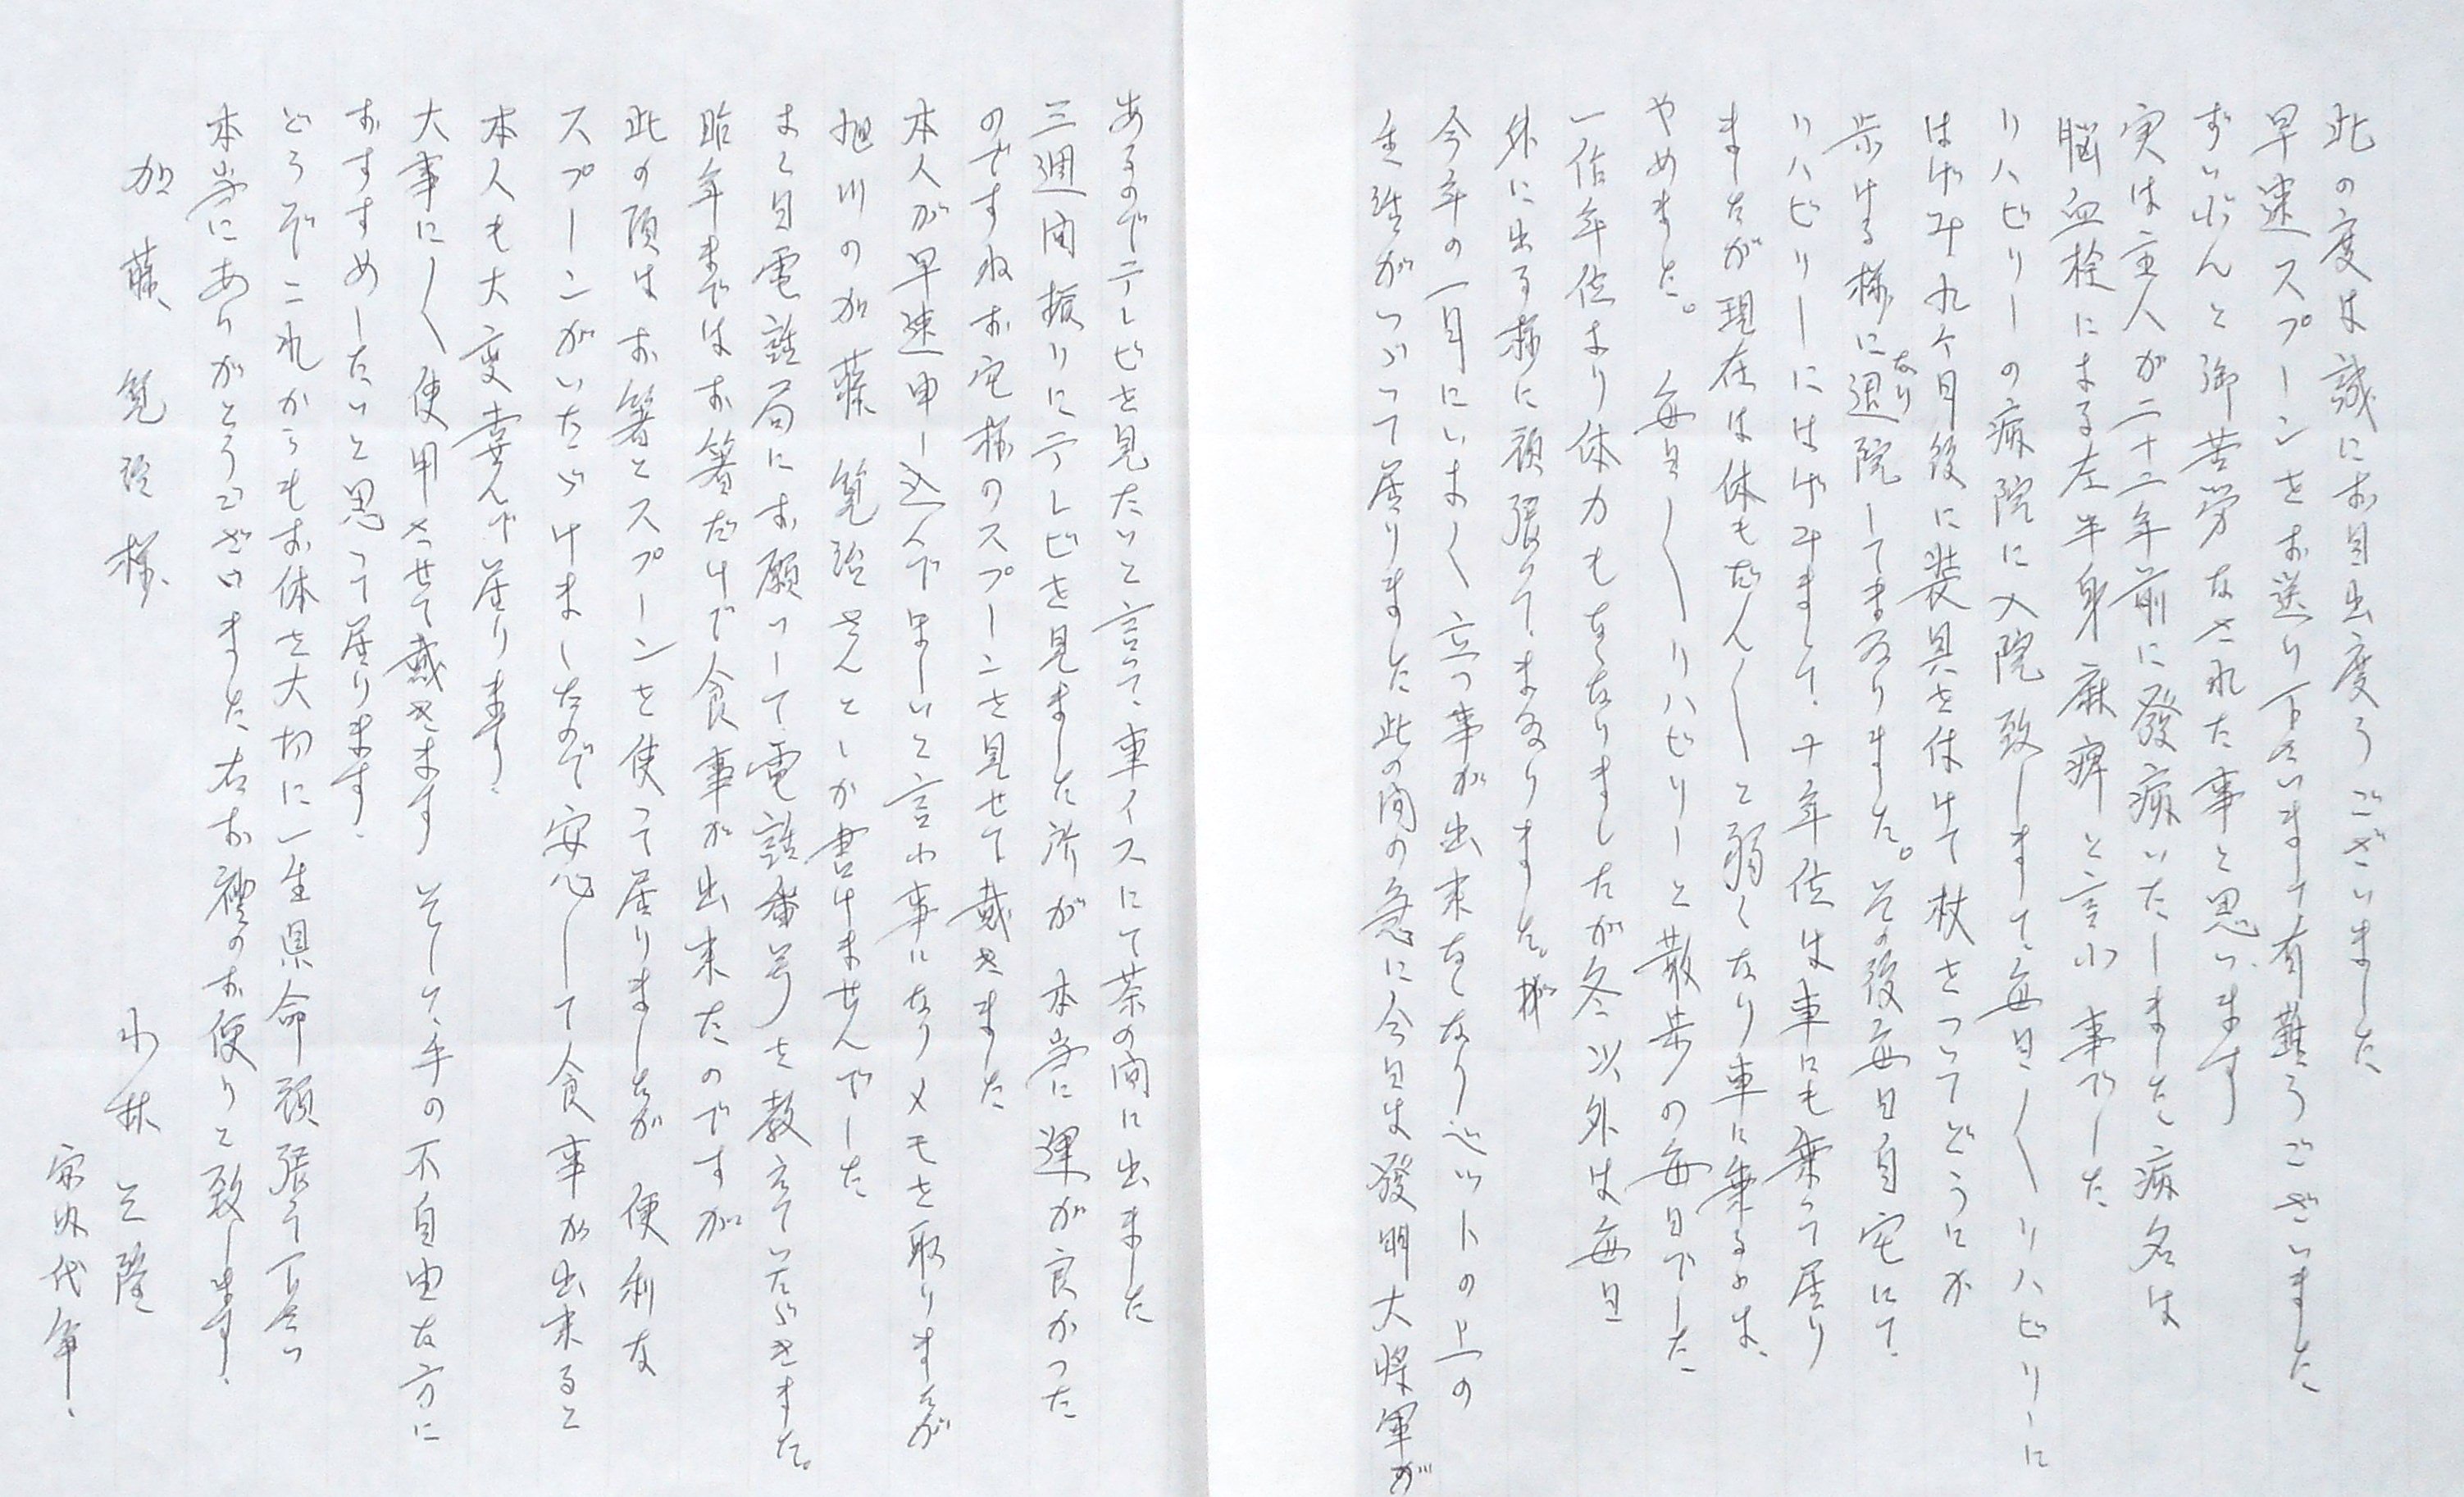 此の度は誠にお目出度うございました
早速スプーンをお送り下さいまして有難うございました
ずいぶんと御苦労なされた事と思います
実は主人が二十二年前に發病いたしました病名は
脳血栓による左半身麻痺と言ふ事でした
リハビリーの病院に入院致しまして、毎日〱リハビリーに
はげみ九ケ月後に装具を付けて杖をついてどうにか
歩ける様になり退院してまゐりました。その後毎日自宅にて
リハビリーにはげみまして、十年位は車にも乗って居り
ましたが現在は体もだん〱と弱くなり車に乗るのは、
やめました。 毎日〱リハビリーと散歩の毎日でした
一作年位より体力もなくなりましたが冬以外は毎日
外に出る様に頑張ってまゐりました。が
今年の一月にいよ〱立つ事が出来なくなりベットの上の
生活がつづって居りました此の間の急に今日は發明大将軍が
あるのでテレビを見たいと言って、車イスにて茶の間に出ました
三週間振りにテレビを見ました所が 本当に運が良かった
のですねお宅様のスプーンを見せて戴きました
本人が早速申し込んで欲しいと言ふ事になりメモを取りますが
旭川の加藤 さんとしか書けませんでした
よく日電話局にお願いして電話番号を教えていただきました。
昨年まではお箸だけで食事が出来たのですが
此の頃はお箸とスプーンを使って居りましたが 便利な
スプーンがいただけましたので安心して食事が出来ると
本人も大変喜んで居ります、
大事に〱使用させて戴きます そして、手の不自由な方に
おすすめしたいと思って居ります、
どうぞこれからもお体を大切に一生県命頑張って下さい
本当にありがとうございました右お禮のお便りと致します、
加藤 様
小林
家内代筆、